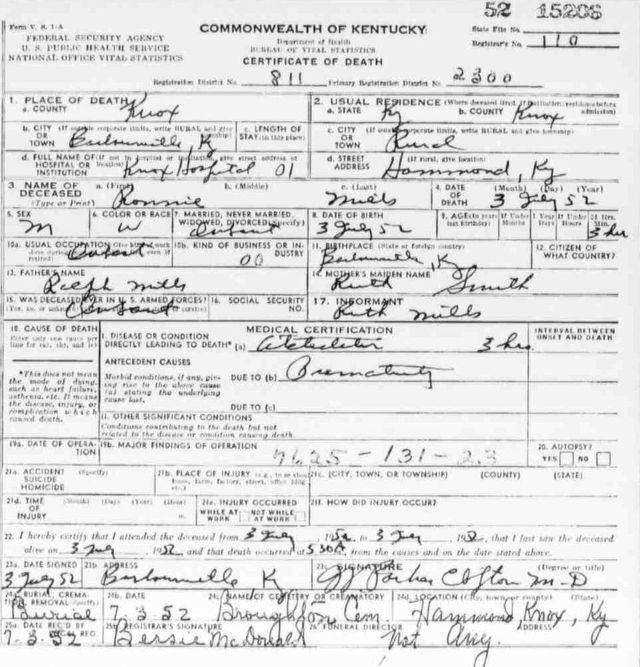 52 15206
Form V. S. 1-A
FEDERAL SECURITY AGENCY
U. S. PUBLIC HEALTH SERVICE
NATIONAL OFFICE VITAL STATISTICS
COMMONWEALTH OF KENTUCKY
Department of Health
BUREAU OF VITAL STATISTICS
CERTIFICATE OF DEATH
State File No.
Registrar's No. 110
Registration District No. 811 Primary Registration District No. 2300
1. PLACE OF DEATH
a. COUNTY Knox
2. USUAL RESIDENCE (Where deceased lived. If institution, residence before admission)
a. STATE Ky b. COUNTY Knox
b. CITY (If outside corporate limits, write RURAL and give township)
OR TOWN Barbourville, Ky
c. LENGTH OF STAY (in this place)
c. CITY (If outside corporate limits, write RURAL and give township)
OR TOWN Rural
d. FULL NAME OF (If not in hospital or institution, give street address or location)
HOSPITAL OR INSTITUTION Knox Hospital 01
d. STREET ADDRESS (If rural, give location)
Hammond, Ky
3. NAME OF DECEASED (Type or Print)
a. (First) Ronnie b. (Middle) c. (Last) Mills
4. DATE OF DEATH (Month) (Day) (Year)
3 July 52
5. SEX M
6. COLOR OR RACE W
7. MARRIED, NEVER MARRIED, WIDOWED, DIVORCED (Specify) Infant
8. DATE OF BIRTH 3 July 52
9. AGE (In years last birthday) If Under 1 Year Months Days If Under 24 Hrs. 3 hrs
10a. USUAL OCCUPATION (Give kind of work
Infant
10b. KIND OF BUSINESS OR INDUSTRY 00
11. BIRTHPLACE (State or foreign country)
Barbourville, Ky
12. CITIZEN OF WHAT COUNTRY?
13. FATHER'S NAME
Ralph Mills
14. MOTHER'S MAIDEN NAME
Ruth Smith
15. WAS DECEASED EVER IN U. S. ARMED FORCES?
16. SOCIAL SECURITY NO.
17. INFORMANT
Ruth Mills
18. CAUSE OF DEATH
Enter only one cause per line for (a), (b), and (c)
MEDICAL CERTIFICATION
INTERVAL BETWEEN ONSET AND DEATH
I. DISEASE OR CONDITION DIRECTLY LEADING TO DEATH* (a) 3 hrs
*This does not mean the mode of dying, such as heart failure, asthenia, etc. It means the disease, injury, or complication which caused death.
ANTECEDENT CAUSES
Morbid conditions, if any, giving rise to the above cause (a) stating the underlying cause last.
DUE TO (b) Prematurity
DUE TO (c)
II. OTHER SIGNIFICANT CONDITIONS
Conditions contributing to the death but not related to the disease or condition causing death.
19a. DATE OF OPERATION
19b. MAJOR FINDINGS OF OPERATION
7625-131-23
20. AUTOPSY?
YES NO
21a. ACCIDENT SUICIDE HOMICIDE (Specify)
21b. PLACE OF INJURY (e.g., in or about home, farm, factory, street, office bldg., etc.)
21c. (CITY, TOWN, OR TOWNSHIP) (COUNTY) (STATE)
21d. TIME OF INJURY (Month) (Day) (Year) (Hour)
21e. INJURY OCCURRED
WHILE AT WORK NOT WHILE AT WORK
21f. HOW DID INJURY OCCUR?
22. I hereby certify that I attended the deceased from 3 July, 1952, to 3 July, 1952, that I last saw the deceased
alive on 3 July, 1952 and that death occurred at 530A, from the causes and on the date stated above.
23a. DATE SIGNED 3 July 52
23b. ADDRESS Barbourville Ky
23c. SIGNATURE (Degree or title)
Parker Clifton M-D
24a. BURIAL, CREMATION, REMOVAL (Specify) Burial
24b. DATE 7.3.52
24c. NAME OF CEMETERY OR CREMATORY Broughton Cem.
24d. LOCATION (City, town or county) (State)
Hammond Knox, Ky
25a. DATE REC'D BY LOCAL REG. 7.3.52
25b. REGISTRAR'S SIGNATURE Bersie McDonald
26. FUNERAL DIRECTOR ADDRESS
Not Any.